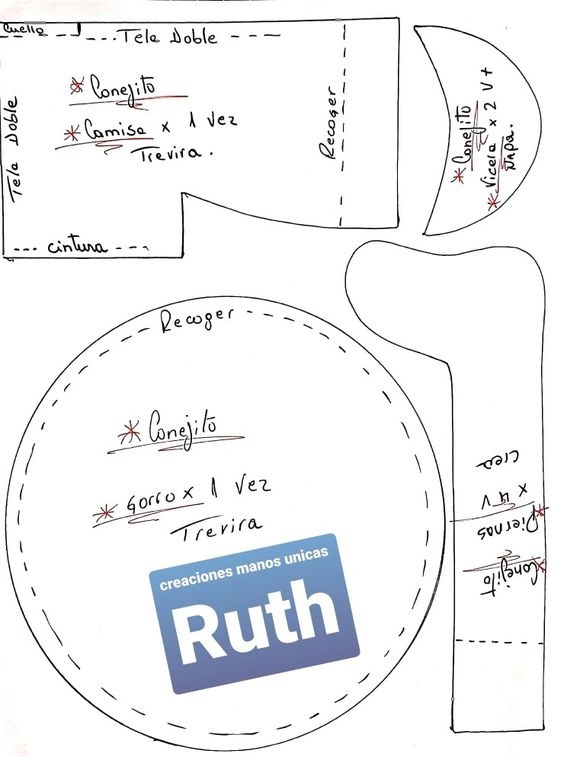 Cuello
--- Tela Doble ---
Tela Doble
* Conejito
* Camisa x 1 Vez
Trevira.
Recoger
--- cintura ---
* Conejito
* Vicera x 2 V +
Napa.
Recoger
* Conejito
* Gorro x 1 Vez
Trevira
creaciones manos unicas
Ruth
* Conejito
* Piernas
x 4 V
crea